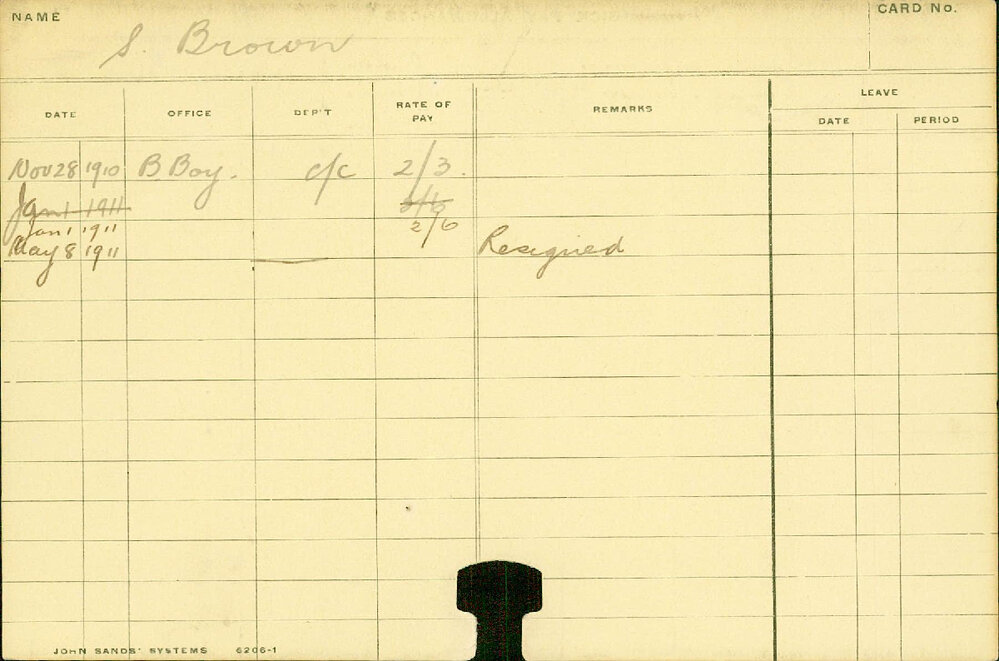 NAME
CARD No.
S. Brown
DATE OFFICE DEP'T RATE OF PAY REMARKS LEAVE
DATE PERIOD
Nov 28 1910 B Boy. c/c 2/3.
Jan 1 1911
Jan 1 1911 2/6
May 8 1911 Resigned
JOHN SANDS' SYSTEMS 6206-1